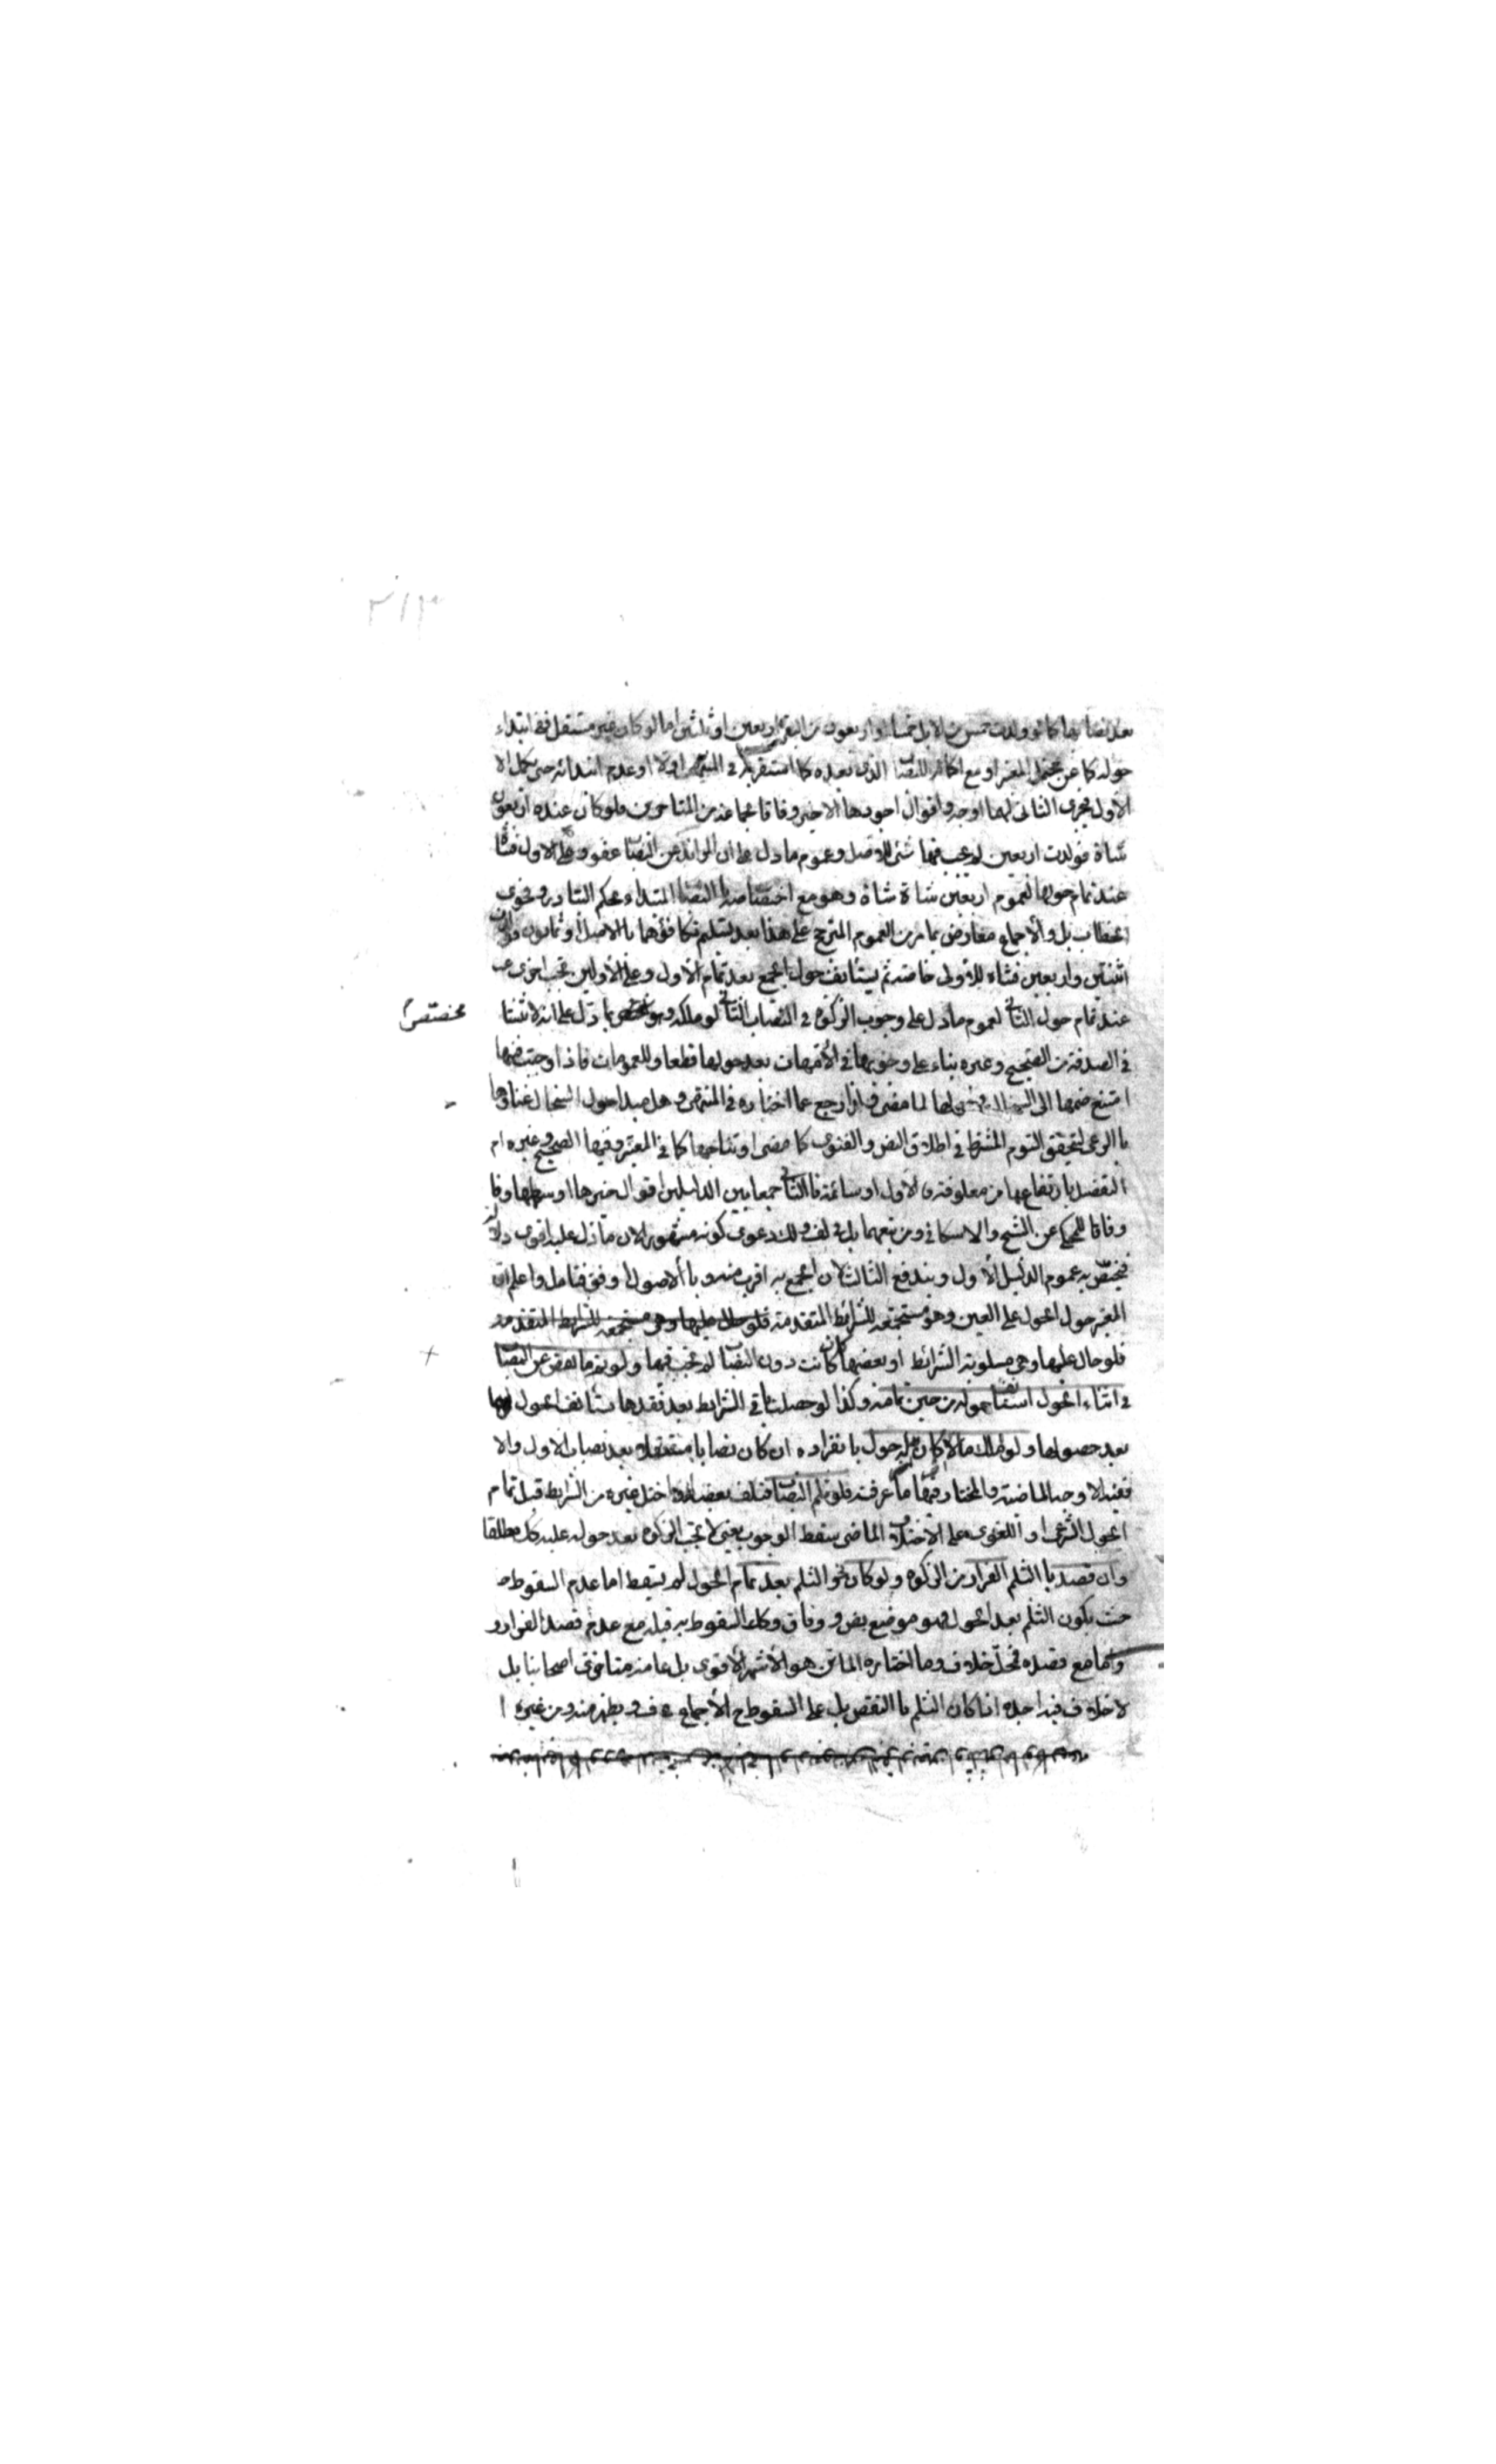 ٢١٣
بعد نصابها كما لو ولدت خمس من الابل خمسا واربعون من البقر اربعين او ثلثين اما لو كان غير مستقل ففى ابتداء
حوله كما عن محتمل المعتبر او مع اكماله للنصاب الذى بعده كما استقر به فى المنتهى اولا او عدم ابتدائه حتى يكمل الا
الاول فيجزى الثانى لهما اوجه واقوال اجودها الاخير وفاقا لجماعة من المتاخرين فلو كان عنده اربعون
شاة فولدت اربعين لم يجب فيها شئ للاصل وعموم ما دل على ان الزائد عن النصاب عفو وعلى الاول فشاة
عند تمام حولها لعموم اربعين شاة شاة وهو مع اختصاصه بالنصاب المبتداء بحكم التبادر وفحوى
الخطاب بل والاجماع معارض بما مر من العموم المترجح على هذا بعد تسليم تكافؤهما بالاصل او ثمانون فولدت
اثنتين واربعين فشاة للاولى خاصة ثم يستانف حول الجمع بعد تمام الاول وعلى الاولين تجب اخرى
عند تمام حول الثانى لعموم ما دل على وجوب الزكوة فى النصاب الثانى لو ملكه وهو بما دل على انه لا ثنيا
مخصص
فى الصدقة من الصحيح وغيره بناء على وجوبها فى الامهات بعد حولها قطعا وللعمومات فاذا وجبت فيها
امتنع ضمها الى السخال فى حولها لما مضى فى ارجح عما اختاره فى المنتهى وهل مبدا حول السخال غناؤها
بالرعى لتحقق السوم المشترط فى اطلاق النص والفتوى كما مضى او نتاجها كما فى المعتبر وفيها الصحيح وغيره ام
التفصيل بارتضاعها من معلوفة فالاول او سائمة فالثانى جمعا بين الدليلين اقوال خيرها اوسطها وفا
وفاقا للمحكى عن الشيخ والاسكافى ومن تبعهما بل فى لف ولك دعوى كونه مشهورا لان ما دل عليه اقوى دلالة
فيختص به عموم الدليل الاول ويندفع الثالث لان الجمع به اقرب منه وبالاصول اوفق فتامل واعلم ان
المعتبر حول الحول على العين وهو مستجمعة للشرائط المتقدمة فلو حال عليها وهى مستجمعة للشرايط المتقدمة
فلو حال عليها وهى مسلوبة الشرائط او بعضها كان كانت دون النصاب لم تجب فيها ولو تم ما نقص عن النصاب
فى اثناء الحول استانف حوله من حين تمامه وكذا لو حصل باقى الشرايط بعد فقدها يستانف الحول لهما
بعد حصولها ولو ملك مالا كان له حول بانفراده ان كان نصابا مستقلا بعد نصاب الاول والا
ففيه الاوجه الماضية والمختار فيها ما عرفته فلو ثلم النصاب فتلف بعضه او اختل غيره من الشرايط قبل تمام
الحول الشرعى او اللغوى على الاختلاف الماضى سقط الوجوب يعنى لا تجب الزكوة بعد حوله عليه كل مطلقا
وان قصد بالثلم الفرار من الزكوة ولو كان نحو الثلم بعد تمام الحول لم يسقط اما عدم السقوط
حيث يكون الثلم بعد الحول فهو موضع نص ووفاق وكذا السقوط به قبله مع عدم قصد الفرار و
واما مع قصده فمحل خلاف وما اختاره الماتن هو الاشهر الاقوى بل عامة متاخرى اصحابنا بل
لا خلاف فيه اجده اذا كان الثلم بالنقص بل على السقوط ح الاجماع فى ف ويظهر منه ومن غيره ا